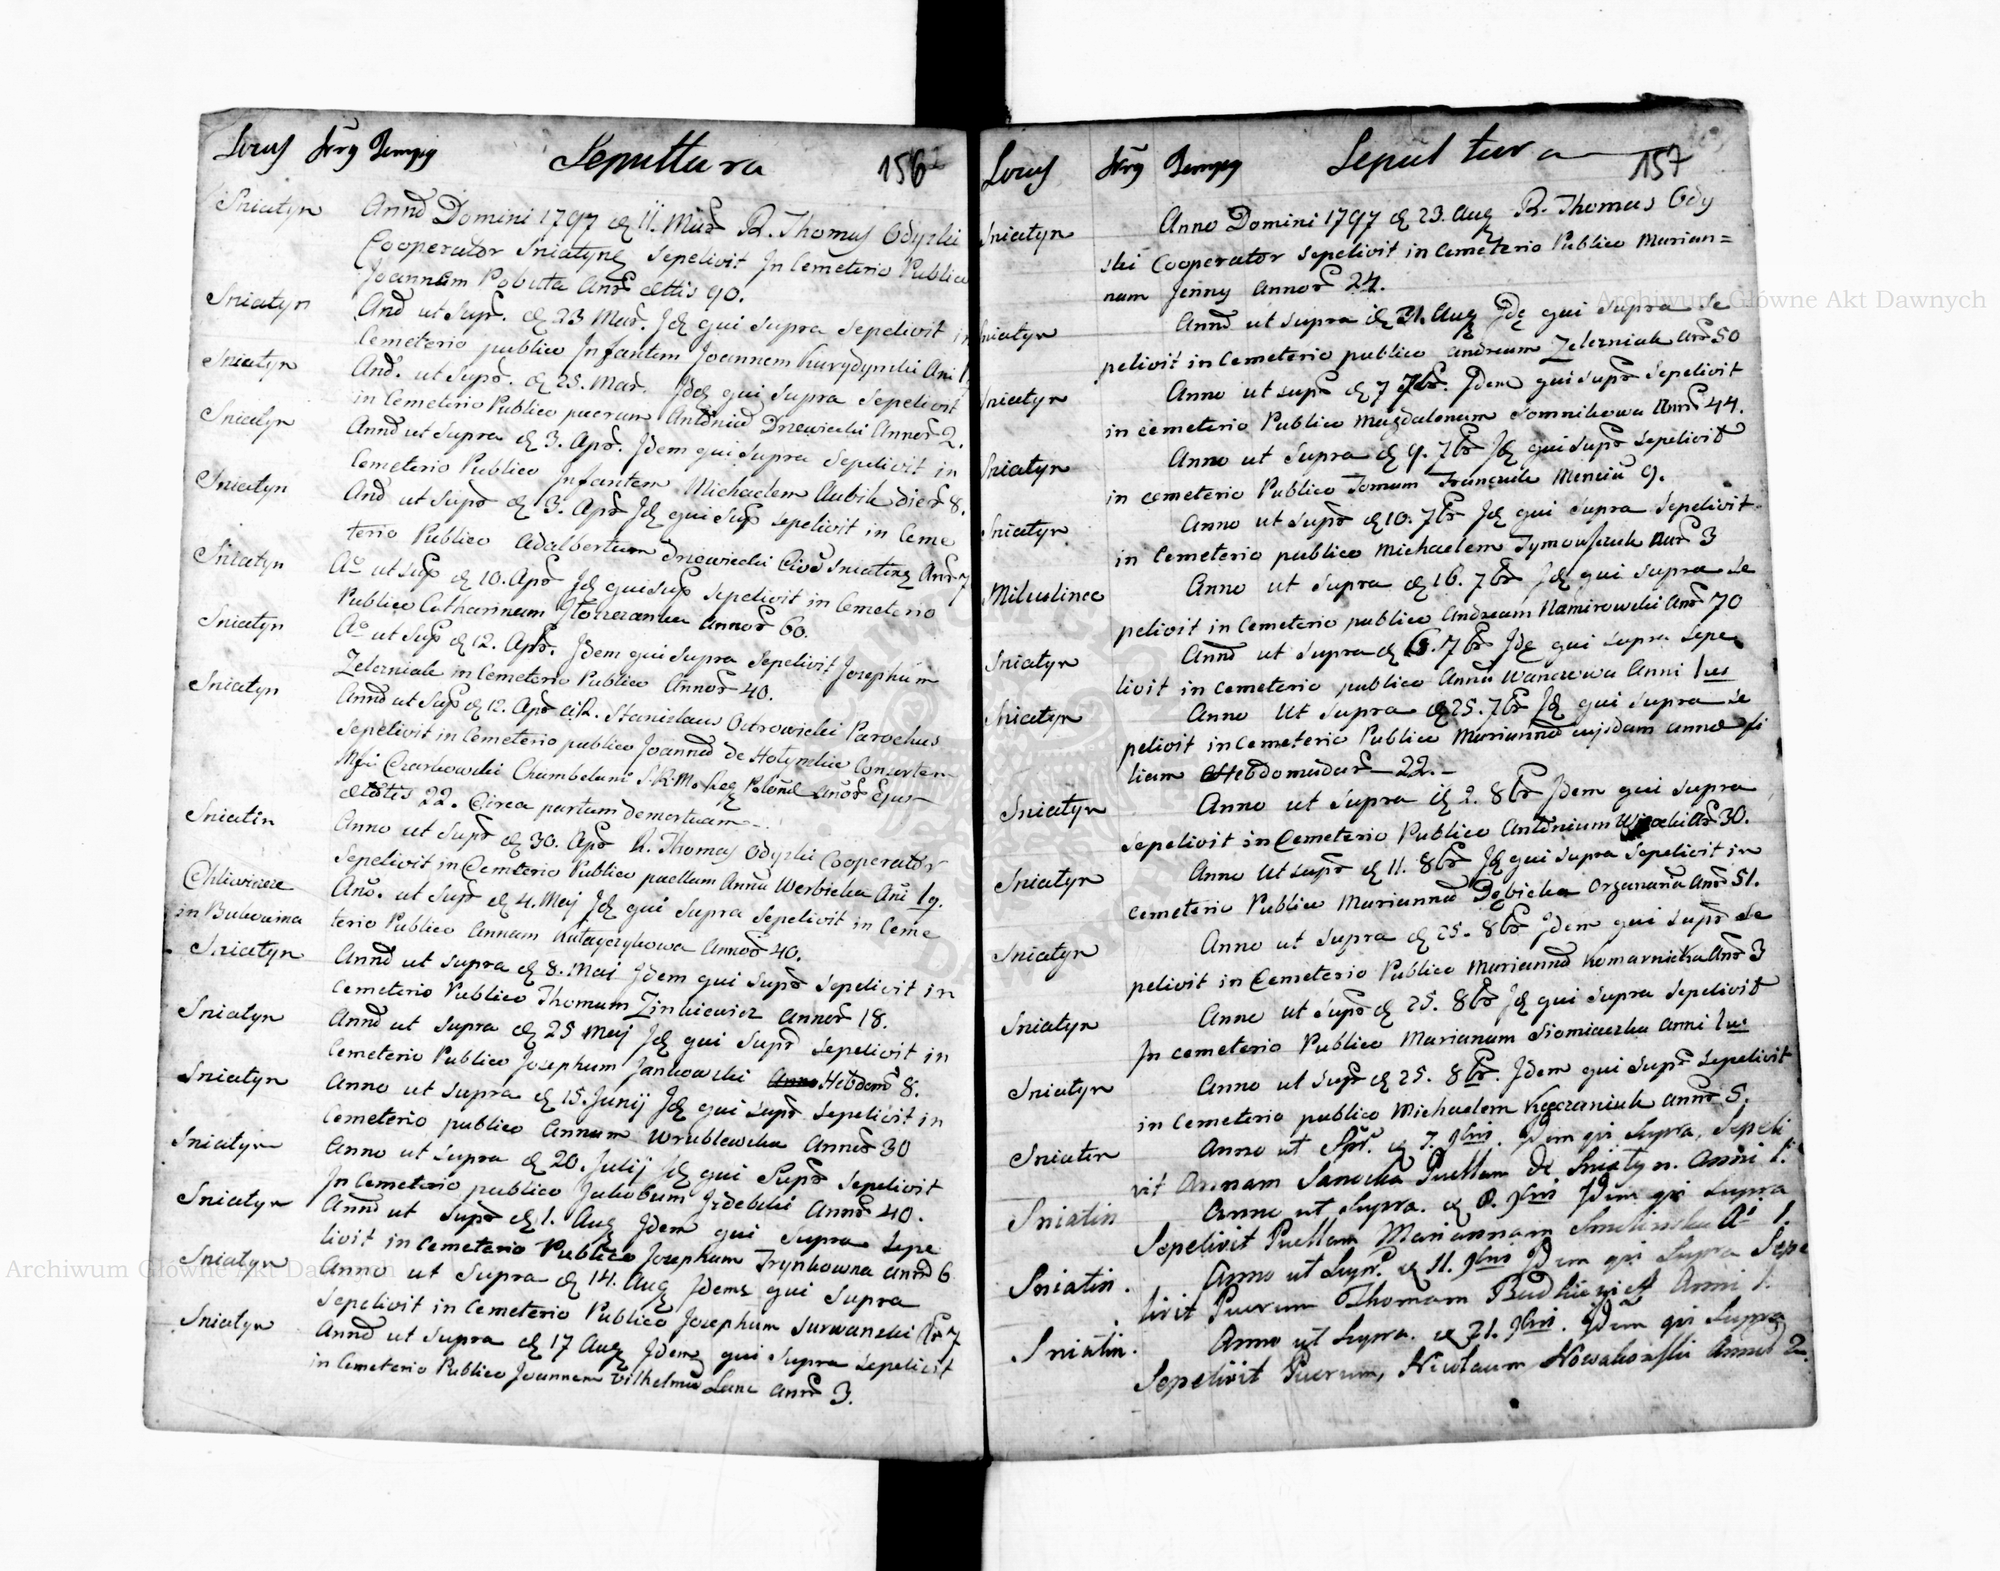 Locus Tempus Sepulttura 156
Sniatyn Anno Domini 1797 11. Mar R. Thomas Odyrski
Cooperator Sniatyn Sepelivit In Cemeterio Publico
Joannem Pobuta Ann ættis 90.
Sniatyn Ano ut Supr. 23 Mar. Id qui supra Sepelivit in
Cemeterio publico Infantem Joannem Kurydynski Ani 1.
Sniatyn Ano. ut Supr. 25. Mar. Id qui supra Sepelivit
in Cemeterio Publico puerum Antoniu Drzewiecki Annor 2.
Sniatyn Anno ut Supra 3. Apr. Idem qui supra Sepelivit in
Cemeterio Publico Infantem Michaelem Kubik dier 8.
Sniatyn Ano ut Supr 3. Apr Id qui Sup Sepelivit in Ceme
terio Publico Adalbertum Drzewiecki Sniatin 
Sniatyn Ao ut Sup 10. Apr Id qui sup Sepelivit in Cemeterio
Publico Catharinam annor 60.
Sniatyn Ao ut Sup 12. Apr. Idem qui supra Sepelivit Josephum
Zelezniak in Cemeterio Publico Annor 40.
Sniatyn Anno ut Sup 12. Apr A.R. Stanislaus Ostrowicki Parochus
Sepelivit in Cemeterio publico Joanna de Hotynskie Consortem
Mfi Czarkowski Chambelani S.R.M. Reg Polona anor Ejus
ætatis 22. Circa partum demortuam
Sniatin Anno ut Supr 30. Apr R. Thomas Odyrski Cooperator
Sepelivit in Cemterio Publico puellam Anna Werbicka Ani 1.
Chliwicze Ano. ut Supr 4. Maj Id qui supra Sepelivit in Ceme
in Bukowina terio Publico Annam Kutayczykowa annor 40.
Sniatyn Anno ut supra 8. Mai Idem qui Supr Sepelivit in
Cemeterio Publico Thomam Zinkiewicz annor 18.
Sniatyn Anno ut Supra 25 Maij Id qui Supr Sepelivit in
Cemeterio Publico Josephum Jankowski Hebdom 8.
Sniatyn Anno ut Supra 15. Junij Id qui Supr Sepelivit in
Cemeterio publico Annam Wrublewska Annor 30
Sniatyn Anno ut Supra 20. Julij Id qui Supr Sepelivit
In Cemeterio publico Jakobum Izdebski Annor 40.
Sniatyn Anno ut Supr 1. Aug Idem qui Supra Sepe
livit in Cemeterio Publico Josepham Trynkowna anno 6
Sniatyn Anno ut Supra 14. Aug Idem qui Supra
Sepelivit in Cemeterio Publico Josephum Surwanski 7
Sniatyn Anno ut Supra 17 Aug Idem qui Supra Sepelivit
in Cemeterio Publico Joannem Vilhelmu Lanc annor 3.
Locus Tempus Sepultura 157
Sniatyn Anno Domini 1797 23. Aug R. Thomas Ody
ski Cooperator Sepelivit in Cemeterio Publico Marian=
nam Jenny Annor 24.
Sniatyn Anno ut supra 31. Aug Id qui supra Se
pelivit in Cemeterio publico Andream Zelezniak Anr 50
Sniatyn Anno ut supr 7 7br. Idem qui supr Sepelivit
in Cemeterio Publico Magdalenam Somnikowa Annr 44.
Sniatyn Anno ut Supra 9. 7br Id qui Supr Sepelivit
in cemeterio Publico Tomam Franczuk Mensiu 9.
Sniatyn Anno ut Supr 10. 7br Id qui supra Sepelivit
in Cemeterio publico Michaelem Tymouszczuk anr 3
Miluslince Anno ut Supra 16. 7br Id qui supra Se
pelivit in Cemeterio publico Andream Namirowski Anr 70
Sniatyn Anno ut supra 18. 7br Id qui supra Sepe
livit in cemeterio publico Anna Wancewa Anni 1us
Sniatyn Anno Ut Supra 25. 7br Id qui supra Se
pelivit in Cemeterio Publico Marianna cujsdam annæ fi
liam Hebdomadar 22.
Sniatyn Anno ut supra 2. 8br Idem qui supra
Sepelivit in Cemeterio Publico Antonium Anr 30.
Sniatyn Anno Ut supr 11. 8br Id qui supra Sepelivit in
Cemeterio Publico Marianna Dębicka Organaria Anr 51.
Sniatyn Anno ut Supra 25. 8br Idem qui Supr Se
pelivit in Cemeterio Publico Marianna Komarnicka Anr 3
Sniatyn Anno ut Supr 25. 8br Id qui supra Sepelivit
In cemeterio Publico Marianam Siomiaczka anni 1us
Sniatyn Anno ut Supr 25. 8br. Idem qui Supr Sepelivit
in Cemeterio publico Michaelem Kaczaniuk annor 5.
Sniatin Anno ut Spr. 7. 9bris. Idem qui Supra, Sepeli
vit Annam Sanocka Puellam de Sniatyn. Anni 1.
Sniatin Anno ut Supra. 8. 9bris Idem qui Supra
Sepelivit Puellam Mariannam Smolinska Ai 1.
Sniatin. Anno ut Supr. 11. 9bris Idem qui Supra Sepe
livit Puerum Thomam Budkiewicz Anni 1.
Sniatin. Anno ut Supra. 21. 9bris. Idem qui Supra
Sepelivit Puerum, Nicolaum Nowakowski Annor 2.
Archiwum Główne Akt Dawnych
Archiwum Główne Akt Dawnych